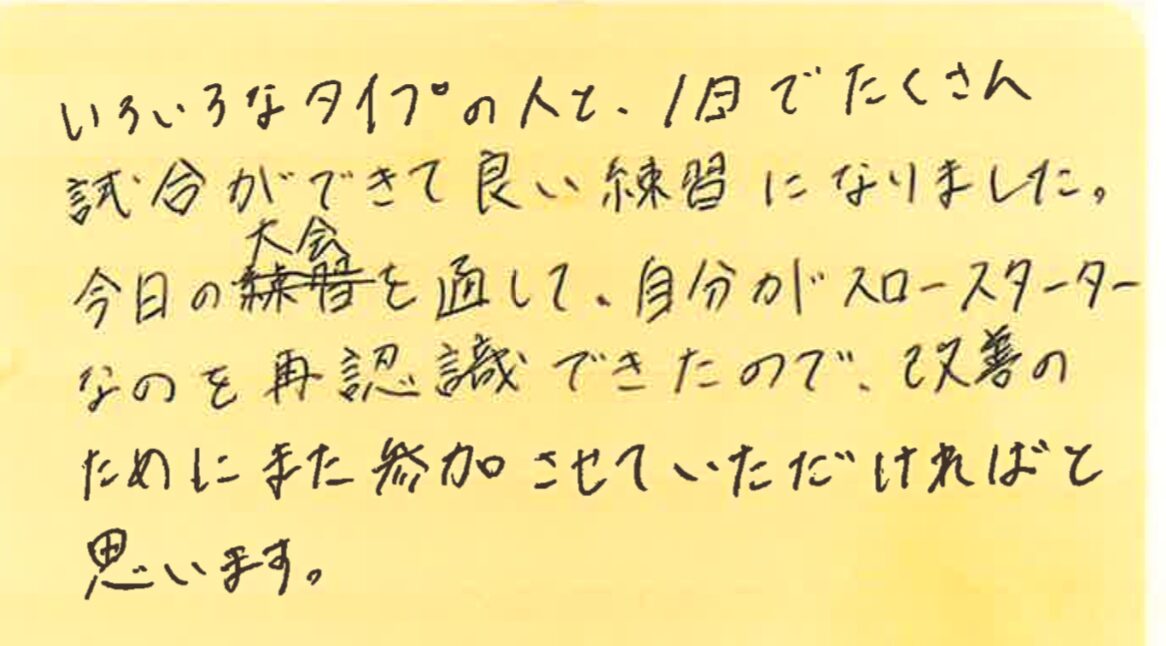 いろいろなタイプの人と、1日でたくさん
試合ができて良い練習になりました。
大会
今日の練習を通して、自分がスロースターター
なのを再認識できたので、改善の
ためにまた参加させていただければと
思います。